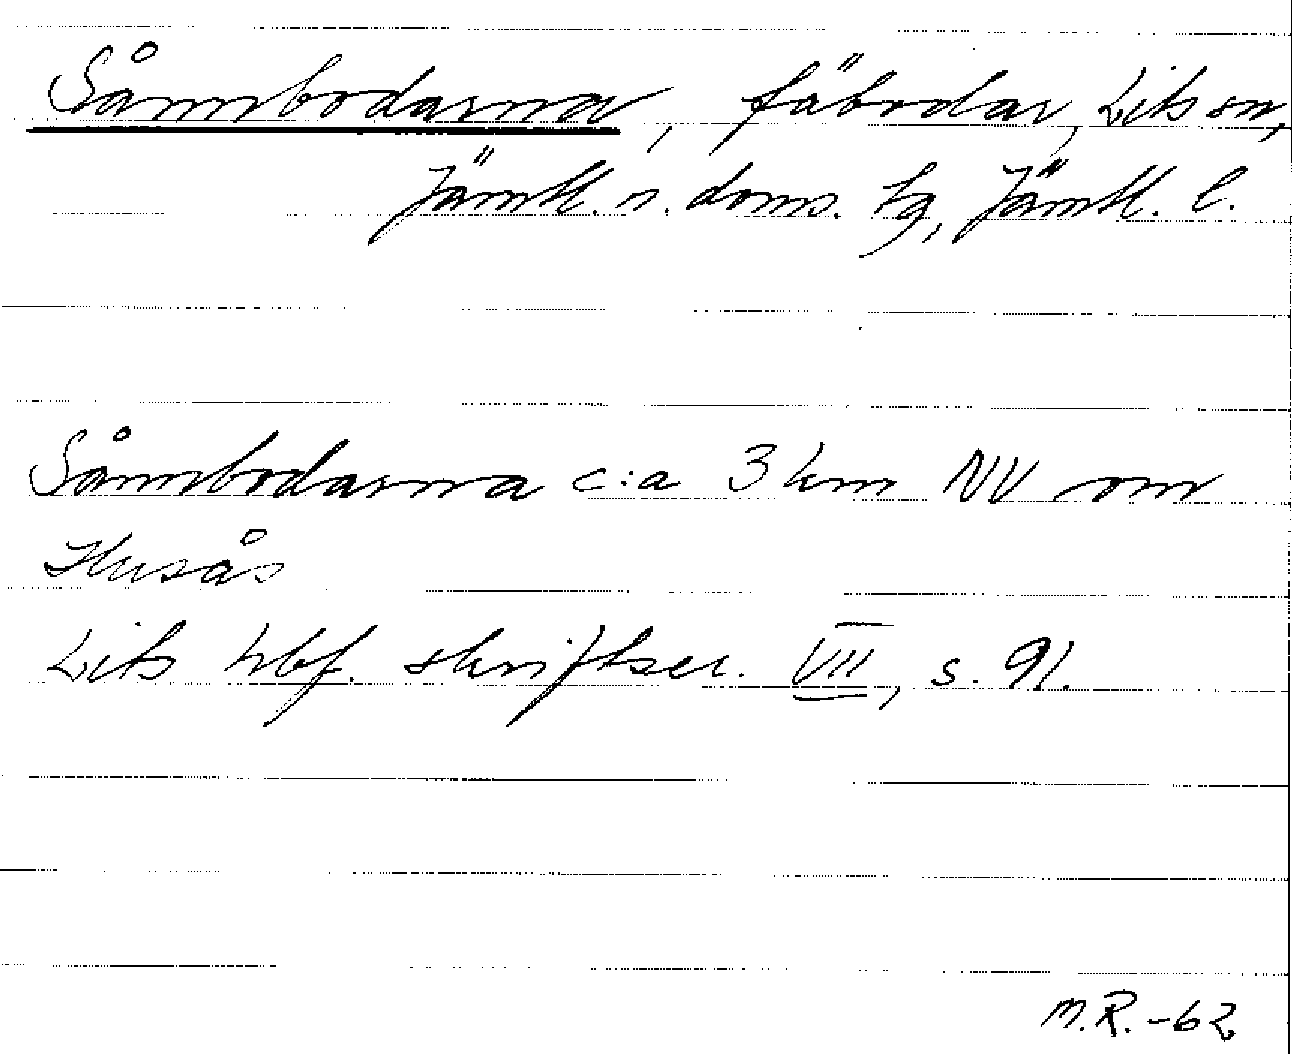 Sånnbodarna, fäbodar, Lits sn,
Jämtl. n. doms. tg, Jämtl. l.
Sånnbodarna c:a 3 km NV om
Husås
Lits hbf. skriftser. VII, s. 91.
M.R. -62